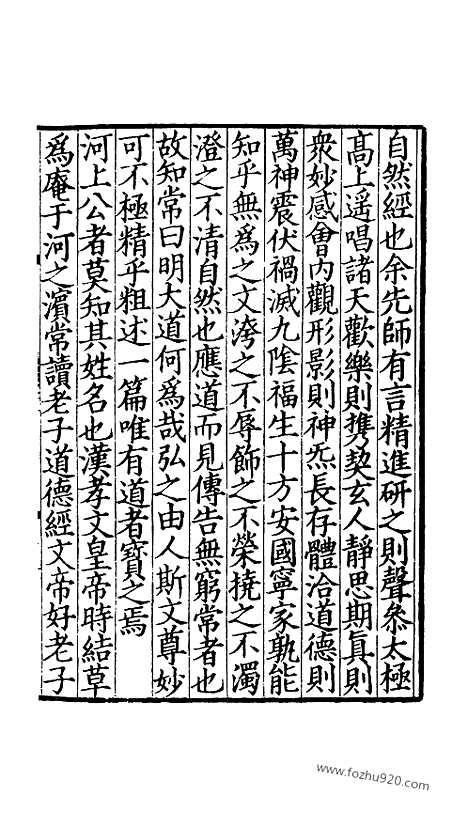 自然經也余先師有言精進研之則聲叅太極
髙上遥唱諸天歡樂則携契玄人靜思期眞則
衆妙感會内觀形影則神炁長存體洽道德則
萬神震伏禍滅九隂福生十方安國寧家孰能
知乎無爲之文洿之不辱飾之不榮撓之不濁
澄之不清自然也應道而見傳告無窮常者也
故知常曰明大道何爲哉弘之由人斯文尊妙
可不極精乎粗述一篇唯有道者寳之焉
河上公者莫知其姓名也漢孝文皇帝時結草
爲庵于河之濵常讀老子道德經文帝好老子
www.fozhu920.com